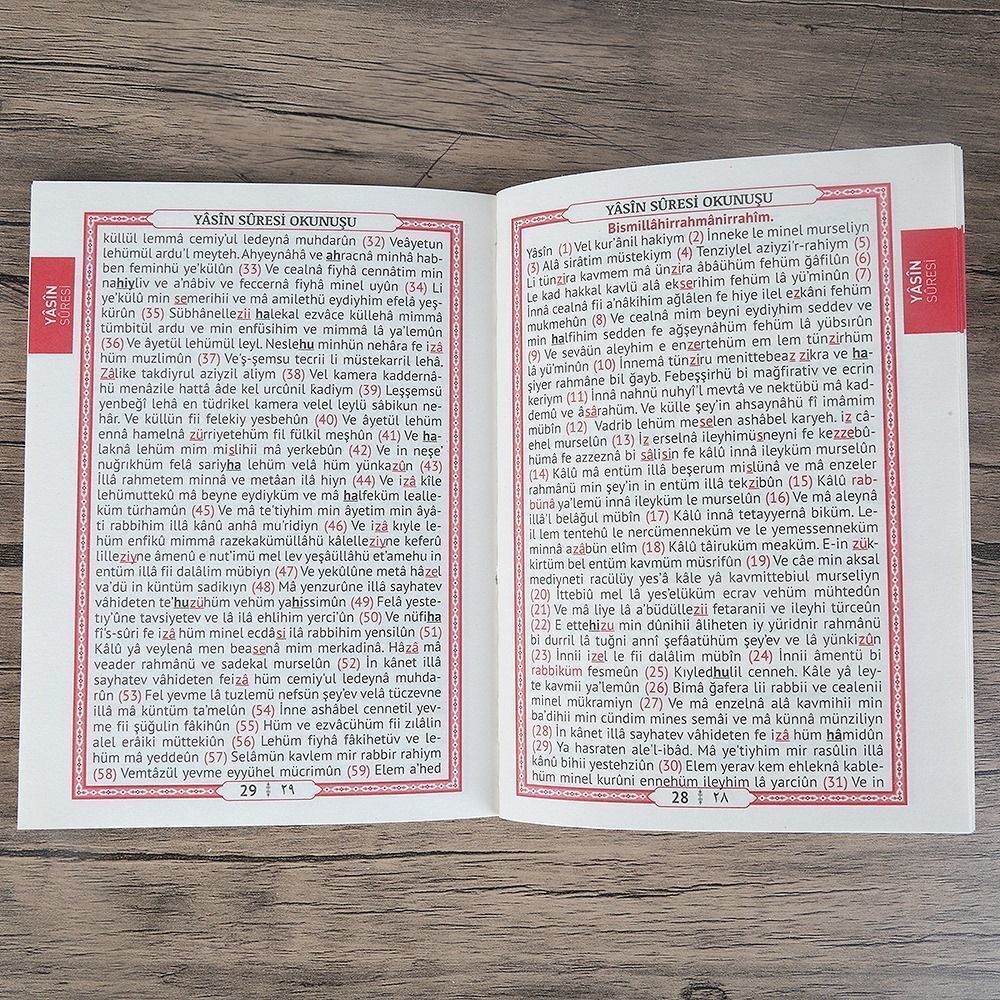 YÂSÎN SÛRESİ OKUNUŞU
Bismillâhirrahmânirrahîm.
Yâsîn (1) Vel kur'ânil hakiym (2) İnneke le minel murseliyn
(3) Alâ sirâtim müstekiym (4) Tenziylel aziyzi'r-rahiym (5)
Li tünzira kavmem mâ ünzira âbâühüm fehüm ğafilûn (6)
Le kad hakkal kavlü alâ ekserihim fehüm lâ yü'minûn (7)
İnnâ cealnâ fii a'nâkihim ağlâlen fe hiye ilel ezkâni fehüm
mukmehûn (8) Ve cealnâ mim beyni eydiyhim seddev ve
min halfihim sedden fe ağşeynâhüm fehüm lâ yübsırûn
(9) Ve sevâün aleyhim e enzertehüm em lem tünzirhüm
lâ yü'minûn (10) İnnemâ tünziru menittebeaz zikra ve ha-
şiyer rahmâne bil ğayb. Febeşşirhü bi mağfirativ ve ecrin
keriym (11) İnnâ nahnü nuhyi'l mevtâ ve nektübü mâ kad-
demû ve âsârahüm. Ve külle şey'in ahsaynâhü fî imâmim
mübîn (12) Vadrib lehüm meselen ashâbel karyeh. iz câ-
ehel murselûn (13) İz erselnâ ileyhimüsneyni fe kezzebû-
hümâ fe azzeznâ bi sâlisin fe kâlû innâ ileyküm murselûn
(14) Kâlû mâ entüm illâ beşerum mislünâ ve mâ enzeler
rahmânü min şey'in in entüm illâ tekzibûn (15) Kâlû rab-
bünâ ya'lemü innâ ileyküm le murselûn (16) Ve mâ aleynâ
illâ'l belâğul mübîn (17) Kâlû innâ tetayyernâ biküm. Le-
il lem tentehû le nercümenneküm ve le yemessenneküm
minnâ azâbün elîm (18) Kâlû tâiruküm meaküm. E-in zük-
kirtüm bel entüm kavmüm müsrifûn (19) Ve câe min aksal
mediyneti racülüy yes'â kâle yâ kavmittebiul murseliyn
(20) İttebiû mel lâ yes'elüküm ecrav vehüm mühtedûn
(21) Ve mâ liye lâ a'büdüllezii fetaranii ve ileyhi türceûn
(22) E ettehizu min dûnihii âliheten iy yüridnir rahmânü
bi durril lâ tuğni annî şefâatühüm şey'ev ve lâ yünkizûn
(23) İnnii izel le fii dalâlim mübîn (24) İnnii âmentü bi
rabbiküm fesmeûn (25) Kıyledhulil cenneh. Kâle yâ ley-
te kavmii ya'lemûn (26) Bimâ ğafera lii rabbii ve cealenii
minel mükramiyn (27) Ve mâ enzelnâ alâ kavmihii min
ba'dihii min cündim mines semâi ve mâ künnâ münziliyn
(28) İn kânet illâ sayhatev vâhideten fe izâ hüm hâmidûn
(29) Ya hasraten ale'l-ibâd. Mâ ye'tiyhim mir rasûlin illâ
kânû bihii yestehziûn (30) Elem yerav kem ehleknâ kable-
hüm minel kurûni ennehüm ileyhim lâ yarciûn (31) Ve in
28 ٢٨
YÂSÎN
SÛRESİ
YÂSÎN SÛRESİ OKUNUŞU
küllül lemmâ cemiy'ul ledeynâ muhdarûn (32) Veâyetun
lehümül ardu'l meyteh. Ahyeynâhâ ve ahracnâ minhâ hab-
ben feminhü ye'külûn (33) Ve cealnâ fiyhâ cennâtim min
nahiyliv ve a'nâbiv ve feccernâ fiyhâ minel uyûn (34) Li
ye'külû min semerihii ve mâ amilethü eydiyhim efelâ yeş-
kürûn (35) Sübhânellezii halekal ezvâce küllehâ mimmâ
tümbitül ardu ve min enfüsihim ve mimmâ lâ ya'lemûn
(36) Ve âyetül lehümül leyl. Neslehu minhün nehâra fe izâ
hüm muzlimûn (37) Ve'ş-şemsu tecrii li müstekarril lehâ.
Zâlike takdiyrul aziyzil aliym (38) Vel kamera kaddernâ-
hü menâzile hattâ âde kel urcûnil kadiym (39) Leşşemsü
yenbeğî lehâ en tüdrikel kamera velel leylü sâbikun ne-
hâr. Ve küllün fii felekiy yesbehûn (40) Ve âyetül lehüm
ennâ hamelnâ zürriyetehüm fil fülkil meşhûn (41) Ve ha-
laknâ lehüm mim mislihii mâ yerkebûn (42) Ve in neşe'
nuğrıkhüm felâ sariyha lehüm velâ hüm yünkazûn (43)
İllâ rahmetem minnâ ve metâan ilâ hiyn (44) Ve izâ kîle
lehümuttekû mâ beyne eydiyküm ve mâ halfeküm lealle-
küm türhamûn (45) Ve mâ te'tiyhim min âyetim min âyâ-
ti rabbihim illâ kânû anhâ mu'ridiyn (46) Ve izâ kıyle le-
hüm enfikû mimmâ razekakümüllâhü kâlelleziyne keferû
lilleziyne âmenû e nut'imü mel lev yeşâüllâhü et'amehu in
entüm illâ fii dalâlim mübîn (47) Ve yekûlûne metâ hâzel
va'dü in küntüm sadikıyn (48) Mâ yenzurûne illâ sayhatev
vâhideten te'huzühüm vehüm yahissimûn (49) Felâ yeste-
tıy'ûne tavsiyetev ve lâ ilâ ehlihim yerci'ûn (50) Ve nüfiha
fî's-sûri fe izâ hüm minel ecdâsi ilâ rabbihim yensilûn (51)
Kâlû yâ veylenâ men beasenâ mim merkadinâ. Hâzâ mâ
veader rahmânü ve sadekal murselûn (52) İn kânet illâ
sayhatev vâhideten feizâ hüm cemiy'ul ledeynâ muhda-
rûn (53) Fel yevme lâ tuzlemü nefsün şey'ev velâ tüczevne
illâ mâ küntüm ta'melûn (54) İnne ashâbel cennetil yev-
me fii şüğulin fâkihûn (55) Hüm ve ezvâcühüm fii zılâlin
alel erâiki müttekiûn (56) Lehüm fiyhâ fâkihetüv ve le-
hüm mâ yeddeûn (57) Selâmün kavlem mir rabbir rahiym
(58) Vemtâzül yevme eyyühel mücrimûn (59) Elem a'hed
29 ٢٩
YÂSÎN
SÛRESİ